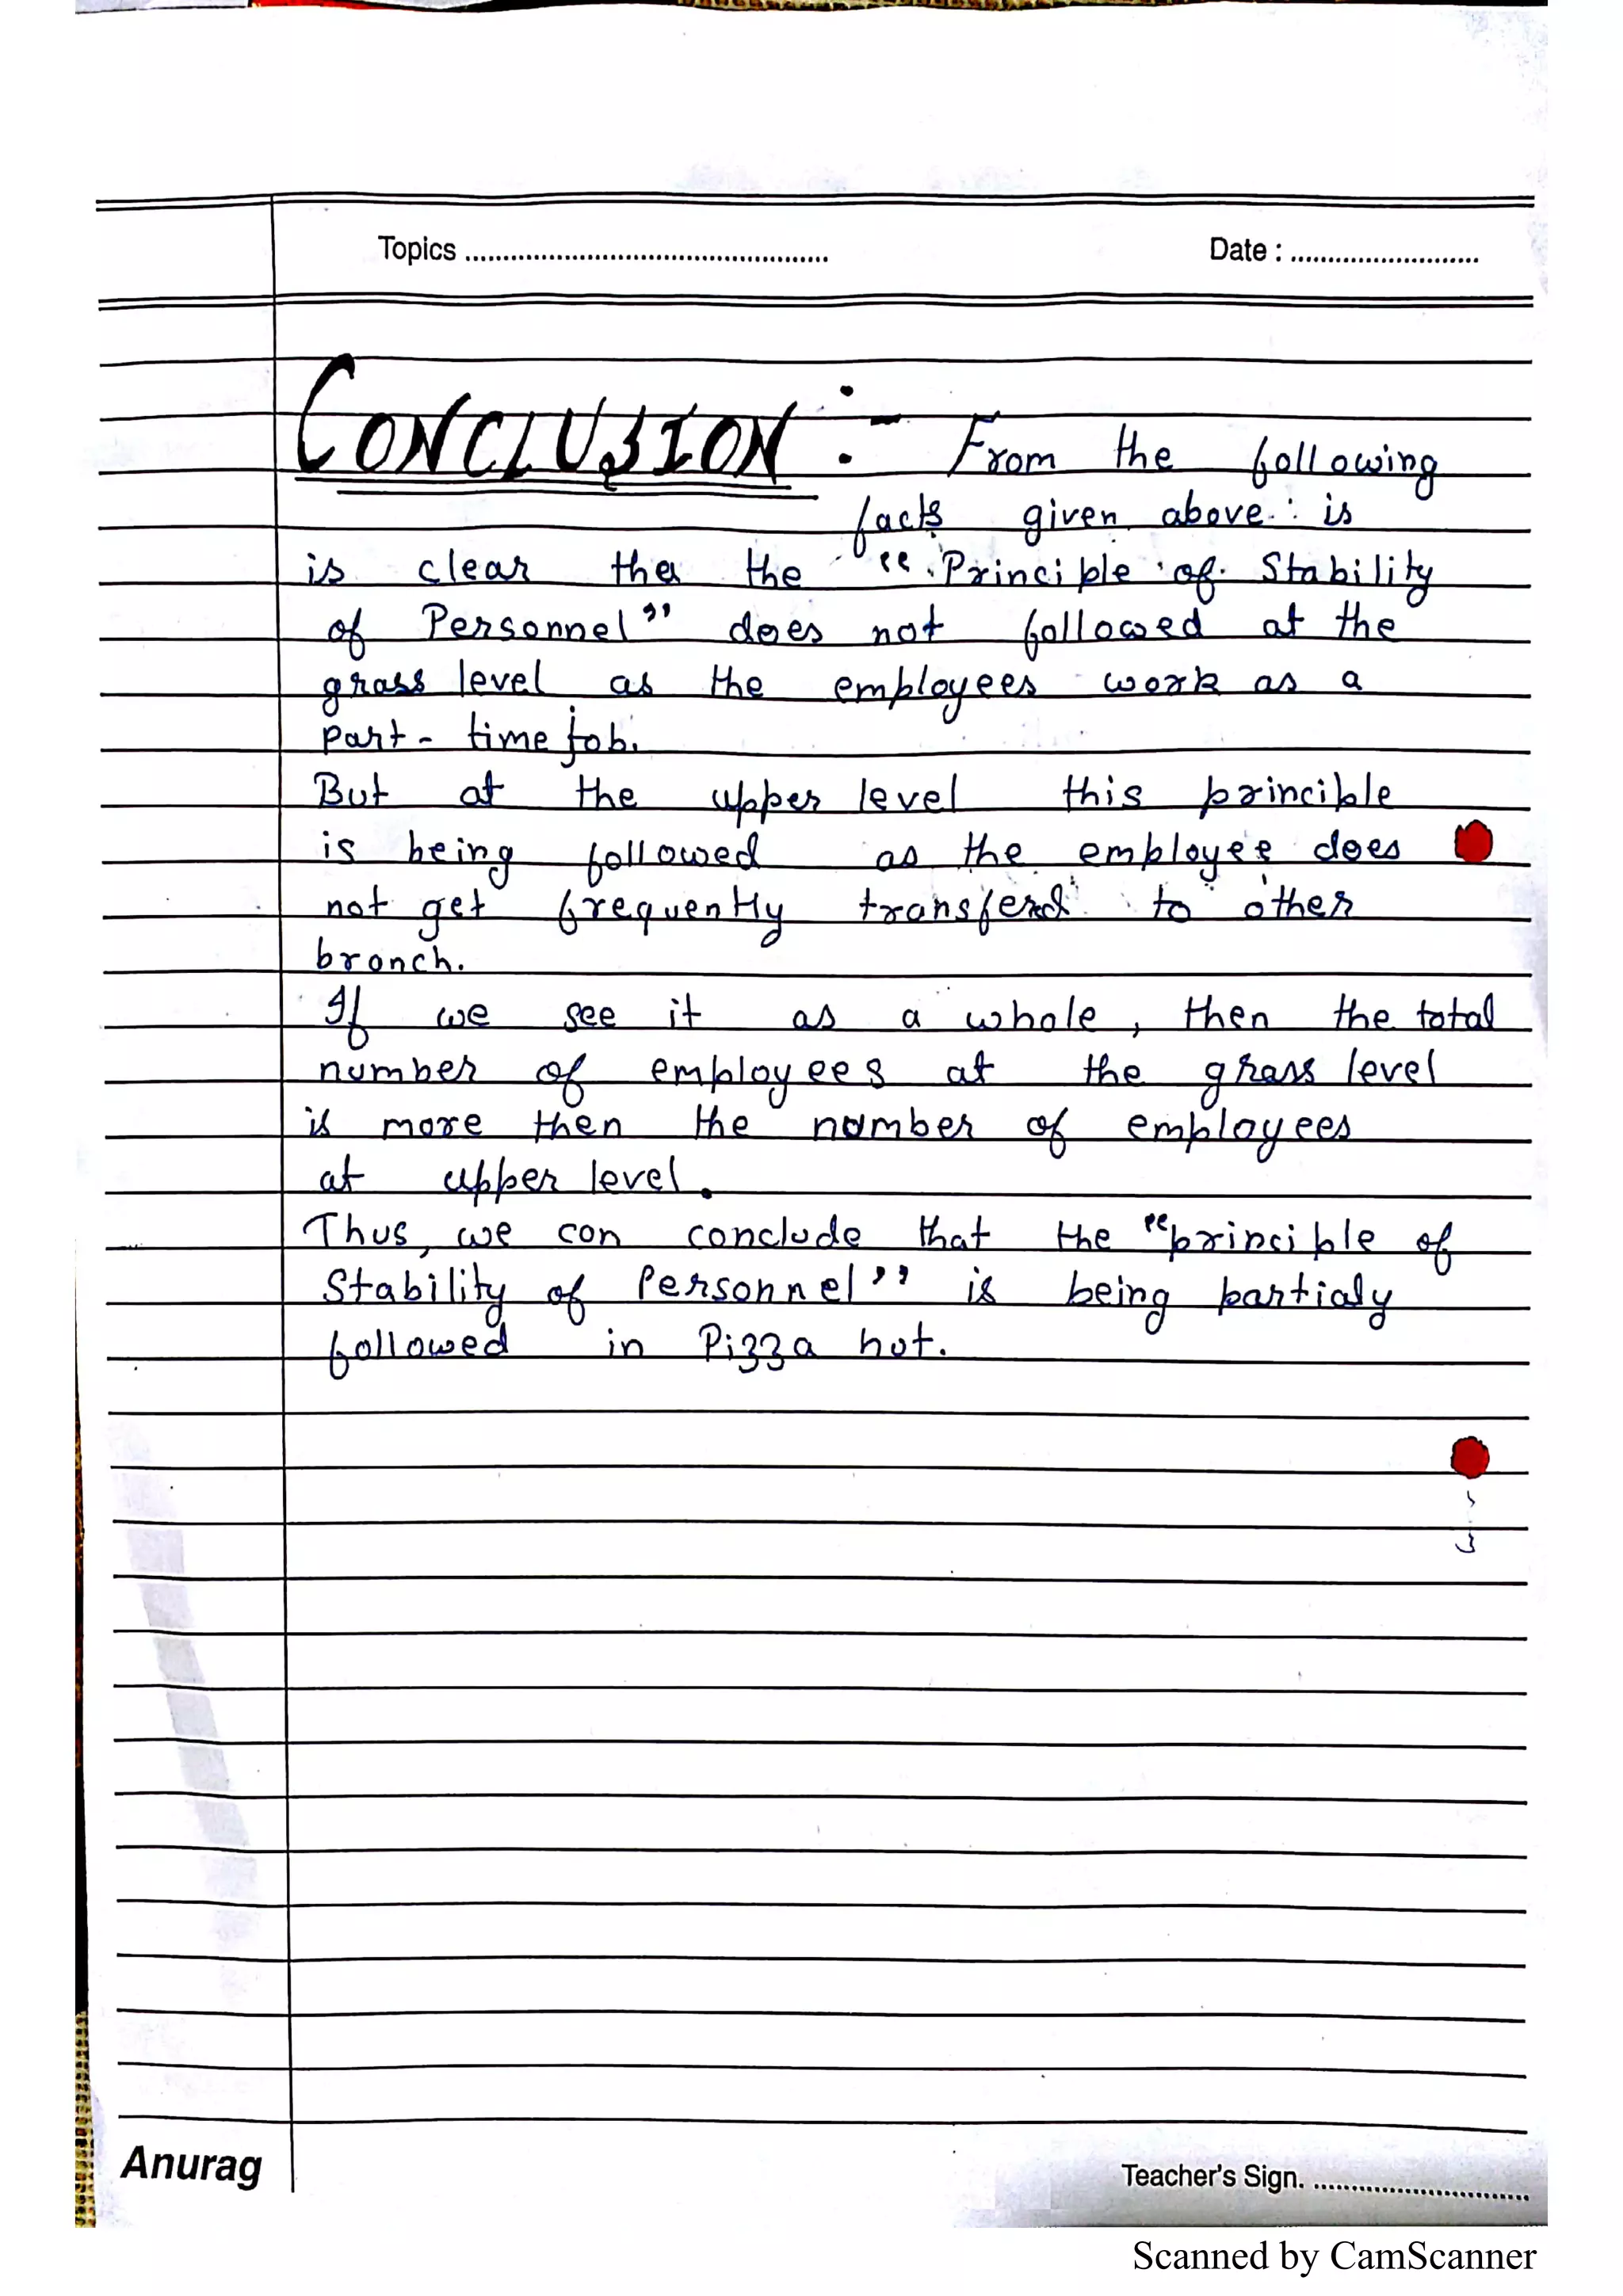 Topics ................................................ Date : .........................
CONCLUSION :- From the following
facts given above : is
is clear tha the "Principle of Stability
of Personnel" does not followed at the
grass level as the employees work as a
part - time job.
But at the upper level this principle
is being followed as the employee does
not get frequently transferd to other
branch.
If we see it as a whole, then the total
number of employees at the grass level
is more then the number of employees
at upper level.
Thus, we can conclude that the "principle of
Stability of Personnel" is being partialy
followed in Pizza hut.
Anurag
Teacher's Sign. .............................
Scanned by CamScanner